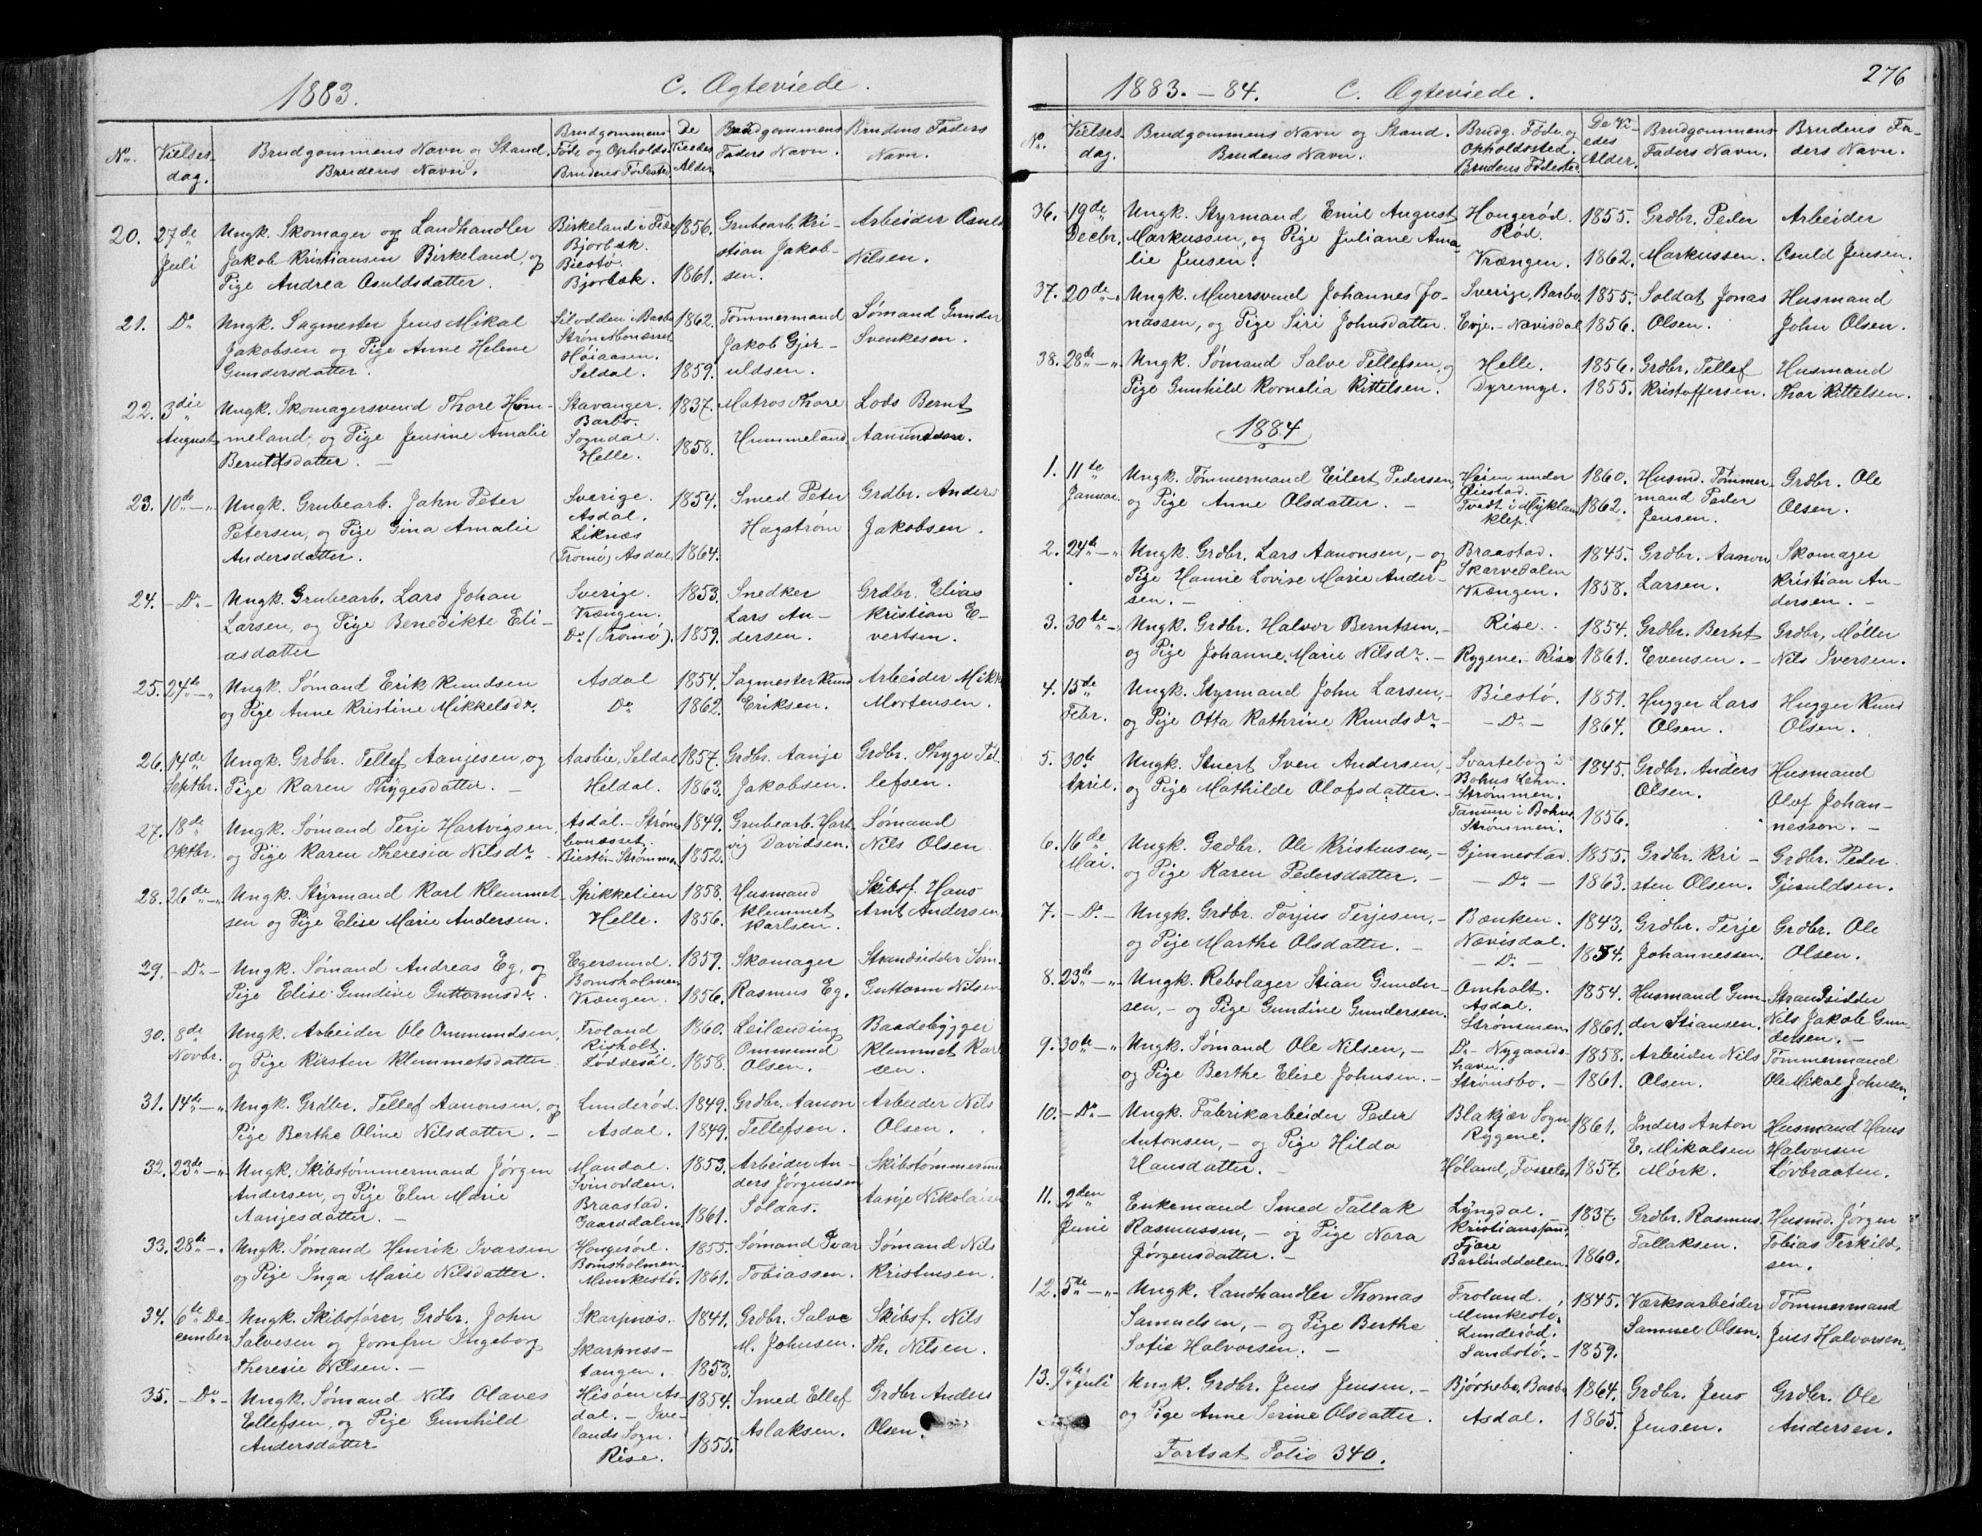 1883. C. Ægteviede.
No. Vielses dag. Brudgommens Navn og Stand. Brudens Navn. Brudgommens Føde og Opholds Brudens Fødested De Viedes Alder Brudgommens Faders Navn. Brudens Faders Navn.
20. 27de Juli Ungk. Skomager og Landhandler Jakob Kristiansen Birkeland og Pige Andrea Osuldsdatter. Birkeland i Bjorbæk. Biestø. Bjorbæk. 1856. 1861. Grubearb. Kristian Jakobsen. Arbeider Osuld Nilsen.
21. Do Ungk. Sagmester Jens Mikal Jakobsen og Pige Anne Helene Gundersdatter. Høiaasen. Seldal. 1862. 1859. Tømmermand Jakob Gjeruldsen. Sømand Gunder Svenkesen.
22. 3die August Ungk. Skomagersvend Thore Hommeland, og Pige Jensine Amalie Berntsdatter. — Stavanger. Barbo. Sogndal. Helle. 1837. 1858. Matros Thore Hummeland. Lods Bernt Aanundsen.
23. 10de —"— Ungk. Grubearb. John Peter Petersen, og Pige Gina Amalie Andersdatter. Sverige. Asdal. Liknæs (Tromø), Asdal 1854. 1864. Smed Peter Hagstrøm Grdbr. Anders Jakobsen.
24. — Do — Ungk. Grubearb. Lars Johan Larsen, og Pige Benedikte Eliasdatter Sverige. Vrængen. Do (Tromø). 1853. 1859. Snedker Lars Andersen. Grdbr. Elias Kristian Evertsen.
25. 24de —"— Ungk. Sømand Erik Knudsen og Pige Anne Kristine Mikkelsdr. Asdal Do 1854. 1862. Sagmester Knud Eriksen. Arbeider Mikkel Mortensen.
26. 14de Septbr. Ungk. Grdbr. Tellef Aanjesen, og Pige Karen Thygesdatter. — Aasbie, Seldal Heldal. 1857. 1863. Grdbr. Aanje Jakobsen. Grdbr. Thyge Tellefsen.
27. 18de Oktbr. Ungk. Sømand Terje Hartvigsen, og Pige Karen Theresia Nilsdr. Asdal — Biestø — Strømmen 1849. 1852. Grubearb. Hartvig Davidsen. Sømand Nils Olsen
28. 26de —"— Ungk. Styrmand Karl Klemmetsen og Pige Elise Marie Andersen. Spikkelien Helle. 1858. 1856. Husmand Klemmet Karlsen. Skibsf. Hans Arnt Andersen
29. — Do — Ungk. Sømand Andreas Eg, og Pige Elise Gundine Guttormsdr. Egersund. Bomsholmen Vrængen. 1859. 1856. Skomager Rasmus Eg. Strandsidder Søm. Guttorm Nilsen
30. 8de Novbr. Ungk. Arbeider Ole Ommundsen, og Pige Kirsten Klemmetsdatter Froland Risholt. Løddesøl. 1860. 1858. Leilænding Ommund Olsen. Baadebygger Klemmet Karlsen.
31. 14de —"— Ungk. Grdbr. Tellef Aanonsen, og Pige Berthe Oline Nilsdatter. — Lunderød. Asdal. 1849. 1849. Grdbr. Aanon Tellefsen. Arbeider Nils Olsen.
32. 23de —"— Ungk. Skibstømmermand Jørgen Andersen, og Pige Elen Marie Aanjesdatter. — Mandal. Svinodden. Braastad. Gaardalen 1853. 1861. Arbeider Anders Jørgensen Solaas. Skibstømmerman Aanje Nikolaisen
33. 28de —"— Ungk. Sømand Henrik Ivarsen og Pige Inga Marie Nilsdatter. Hongerød. Bomsholmen. Munkestø. 1855. 1861. Sømand Ivar Tobiassen. Sømand Nils Kristensen.
34. 6te December Ungk. Skibsfører, Grdbr. John Salvesen og Jomfru Ingeborg Theresie Nilsen. — Skarpnæs. Skarpnæstangen. 1841. 1853. Grdbr. Salve M. Johnsen. Skibsf. Nils Th. Nilsen.
35. — Do — Ungk. Sømand Nils Olaves Ellefsen, og Pige Gunhild Andersdatter Hisøen Asdal. — Ivelands Sogn. Rise. 1854. 1855. Smed Ellef Aslaksen. Grdbr. Anders Olsen.
276
1883. — 84. C. Ægteviede.
No. Vielses dag. Brudgommens Navn og Stand. Brudens Navn. Brudg. Føde og Opholdssted. Brudens Fødested De Viedes Alder. Brudgommens Faders Navn. Brudens Faders Navn.
36. 19de Decbr. Ungk. Styrmand Emil August Markussen, og Pige Juliane Amalie Jensen. Hongerød. Rød. Vrængen. 1855. 1862. Grdbr. Peder Markussen. Arbeider Osuld Jensen.
37. 20de —"— Ungk. Murersvend Johannes Jonassen, og Pige Siri Johnsdatter. Sverige, Barbo Evje. — Nævisdal 1855. 1856. Soldat Jonas Olsen. Husmand John Olsen.
38. 28de —"— Ungk. Sømand Salve Tellefsen, og Pige Gunhild Kornelia Kittelsen. Helle. Dyremyr. 1856. 1855. Grdbr. Tellef Kristoffersen. Husmand Thor Kittelsen.
1884
1. 11te Januar. Ungk. Tømmermand Eilert Pedersen, og Pige Anne Olsdatter. — Heien under Øiestad. — Tvedt i Myklandklep. 1860. 1862. Husmd. Tømmermand Peder Jensen. Grdbr. Ole Olsen.
2. 24de —"— Ungk. Grdbr. Lars Aanonsen, — og Pige Hanne Lovise Marie Andersen. — Braastad. Skarvedalen Vrængen. 1845. 1858. Grdbr. Aanon Larsen. Skomager Kristian Andersen. —
3. 30te —"— Ungk. Grdbr. Halvor Berntsen, — og Pige Johanne Marie Nilsdr. — Rise. Rygene. — Rise 1854. 1861. Grdbr. Bernt Evensen. — Grdbr. Møller Nils Iversen.
4. 15de Febr. Ungk. Styrmand John Larsen, — og Pige Otta Kathrine Knudsdr. — Biestø. — Do — 1851. 1864. Hugger Lars Olsen. Hugger Knud Olsen.
5. 30te April. Ungk. Stuert Sven Andersen, — og Pige Mathilde Olofsdatter. — Svarteborg i Bohus Lehn. Strømmen. Tanum i Bohus. Strømmen. 1845. 1856. Grdbr. Anders Olsen. Husmand Olof Johannesson. —
6. 16de Mai. Ungk. Grdbr. Ole Kristensen, — og Pige Karen Pedersdatter. — Gjennestad. — Do — 1855. 1863. Grdbr. Kristen Olsen. Grdbr. Peder Gjeruldsen.
7. — Do — Ungk. Grdbr. Torjus Terjesen, — og Pige Marthe Olsdatter. — Bænken. Nævisdal. — Do — 1843. 1854. Grdbr. Terje Johannessen. Grdbr. Ole Olsen.
8. 23de —"— Ungk. Rebslager Stian Gundersen, — og Pige Gundine Gundersen. Omholt. Asdal. Strømmen 1854. 1861. Husmand Gunder Stiansen. Strandsidder Nils Jakob Gundersen. —
9. 30te —"— Ungk. Sømand Ole Nilsen, — og Pige Berthe Elise Johnsen. — Do — Nygaardshavn. Strømsbo. — 1858. 1861. Arbeider Nils Olsen. Tømmermand Ole Mikal Johnsen.
10. — Do — Ungk. Fabrikarbeider Peder Antonsen, — og Pige Hilda Hansdatter. — Blakjær Sogn Rygene. Høland, Fosseløs 1861. 1857. Anders Anton E. Mikalsen Mörk. Husmand Hans Halvorsen Løvbraaten.
11. 2den Juni Enkemand Smed Tallak Rasmussen, — og Pige Nora Jørgensdatter. — Lyngdal. Kristianssund, Fjære Barlinddalen. 1837. 1860. Grdbr. Rasmus Tallaksen. Husmd. Jørgen Tobias Terkildsen.
12. 5te —"— Ungk. Landhandler Thomas Samuelsen, — og Pige Berthe Sofie Halvorsen. — Froland. Munkestø. Lunderød. Sandstø. — 1845. 1859. Værksarbeider Samuel Olsen. Tømmermand Jens Halvorsen.
13. 9de Juli Ungk. Grdbr. Jens Jensen, — og Pige Anne Serine Olsdatter. Bjørnebo, Barbo Asdal. 1864. 1865. Grdbr. Jens Jensen. Grdbr. Ole Andersen.
Fortsat Folio 340.